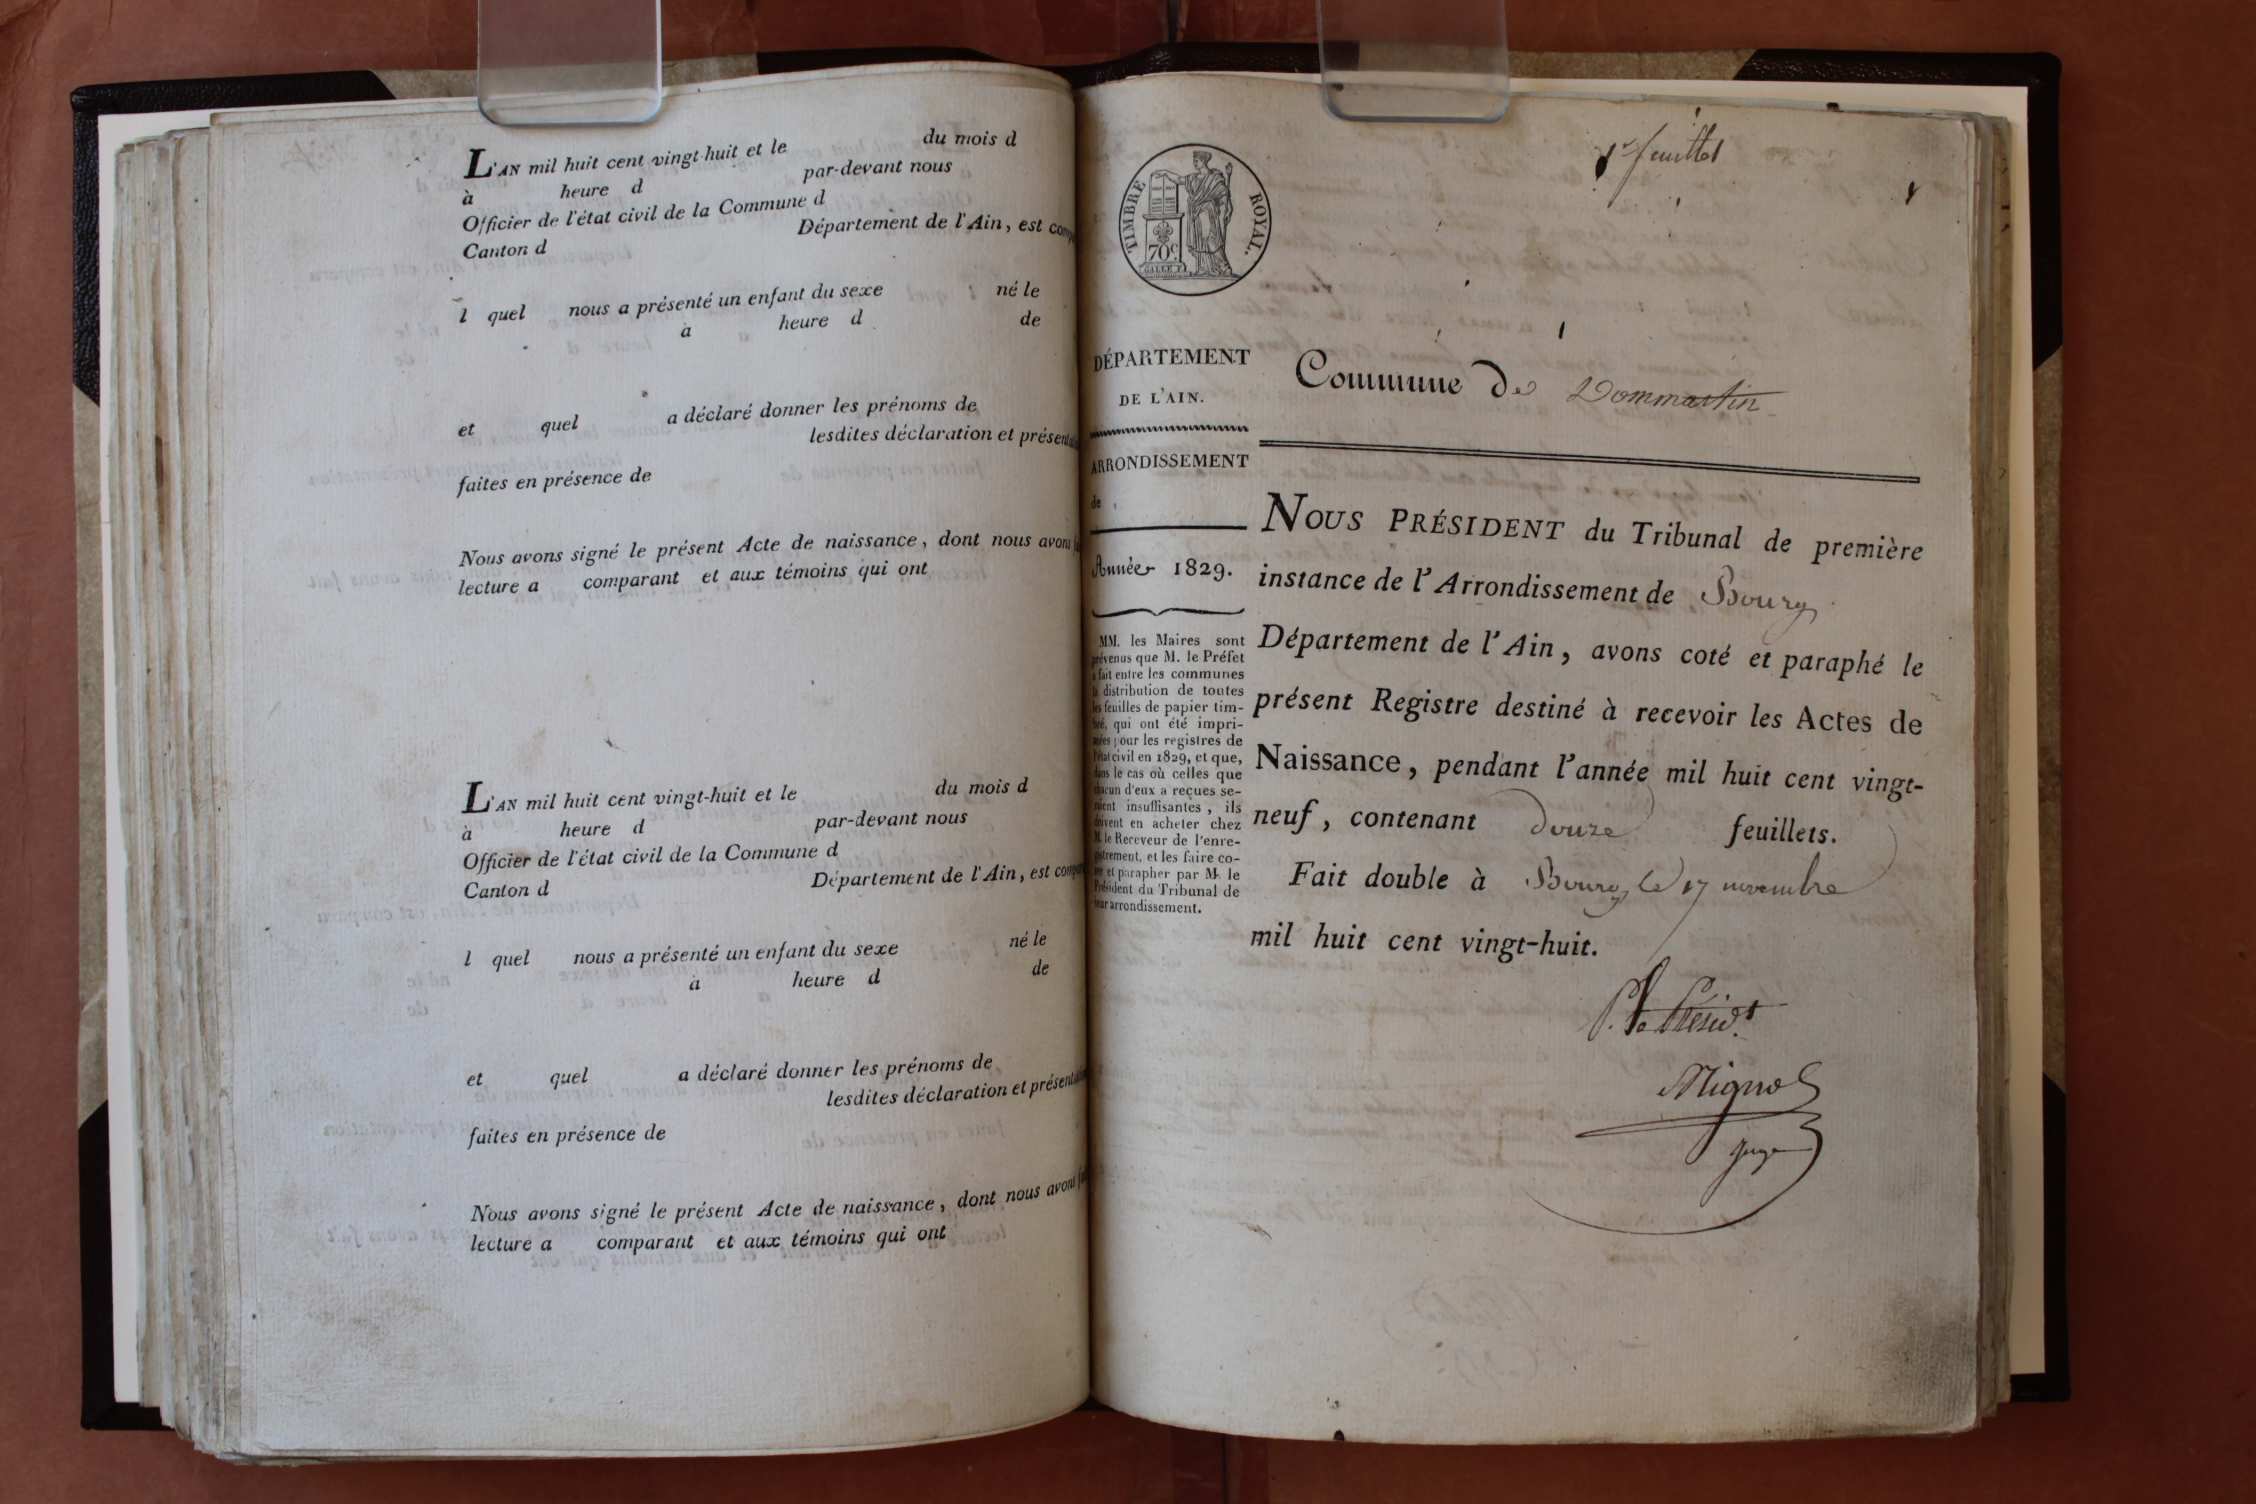 L'AN mil huit cent vingt-huit et le du mois d
à heure d par-devant nous
Officier de l'état civil de la Commune d
Canton d Département de l'Ain, est
l quel nous a présenté un enfant du sexe né le
à heure d de
et quel a déclaré donner les prénoms de
lesdites déclaration et
faites en présence de
Nous avons signé le présent Acte de naissance, dont nous avons
lecture a comparant et aux témoins qui ont
L'AN mil huit cent vingt-huit et le du mois d
à heure d par-devant nous
Officier de l'état civil de la Commune d
Canton d Département de l'Ain, est
l quel nous a présenté un enfant du sexe né le
à heure d de
et quel a déclaré donner les prénoms de
lesdites déclaration et
faites en présence de
Nous avons signé le présent Acte de naissance, dont nous avons
lecture a comparant et aux témoins qui ont
1er feuillet
TIMBRE ROYAL.
70c
DÉPARTEMENT
DE L'AIN.
ARRONDISSEMENT
de
Année 1829.
MM. les Maires sont
prévenus que M. le Préfet
a fait entre les communes
la distribution de toutes
les feuilles de papier tim-
bré, qui ont été impri-
mées pour les registres de
l'état civil en 1829, et que,
dans le cas où celles que
chacun d'eux a reçues se-
roient insuffisantes, ils
doivent en acheter chez
M. le Receveur de l'enre-
gistrement, et les faire co-
ter et parapher par M. le
Président du Tribunal de
leur arrondissement.
Commune de Dommartin
NOUS PRÉSIDENT du Tribunal de première
instance de l'Arrondissement de Bourg
Département de l'Ain, avons coté et paraphé le
présent Registre destiné à recevoir les Actes de
Naissance, pendant l'année mil huit cent vingt-
neuf, contenant douze feuillets.
Fait double à Bourg le 17 novembre
mil huit cent vingt-huit.
P. le Présidt
juge